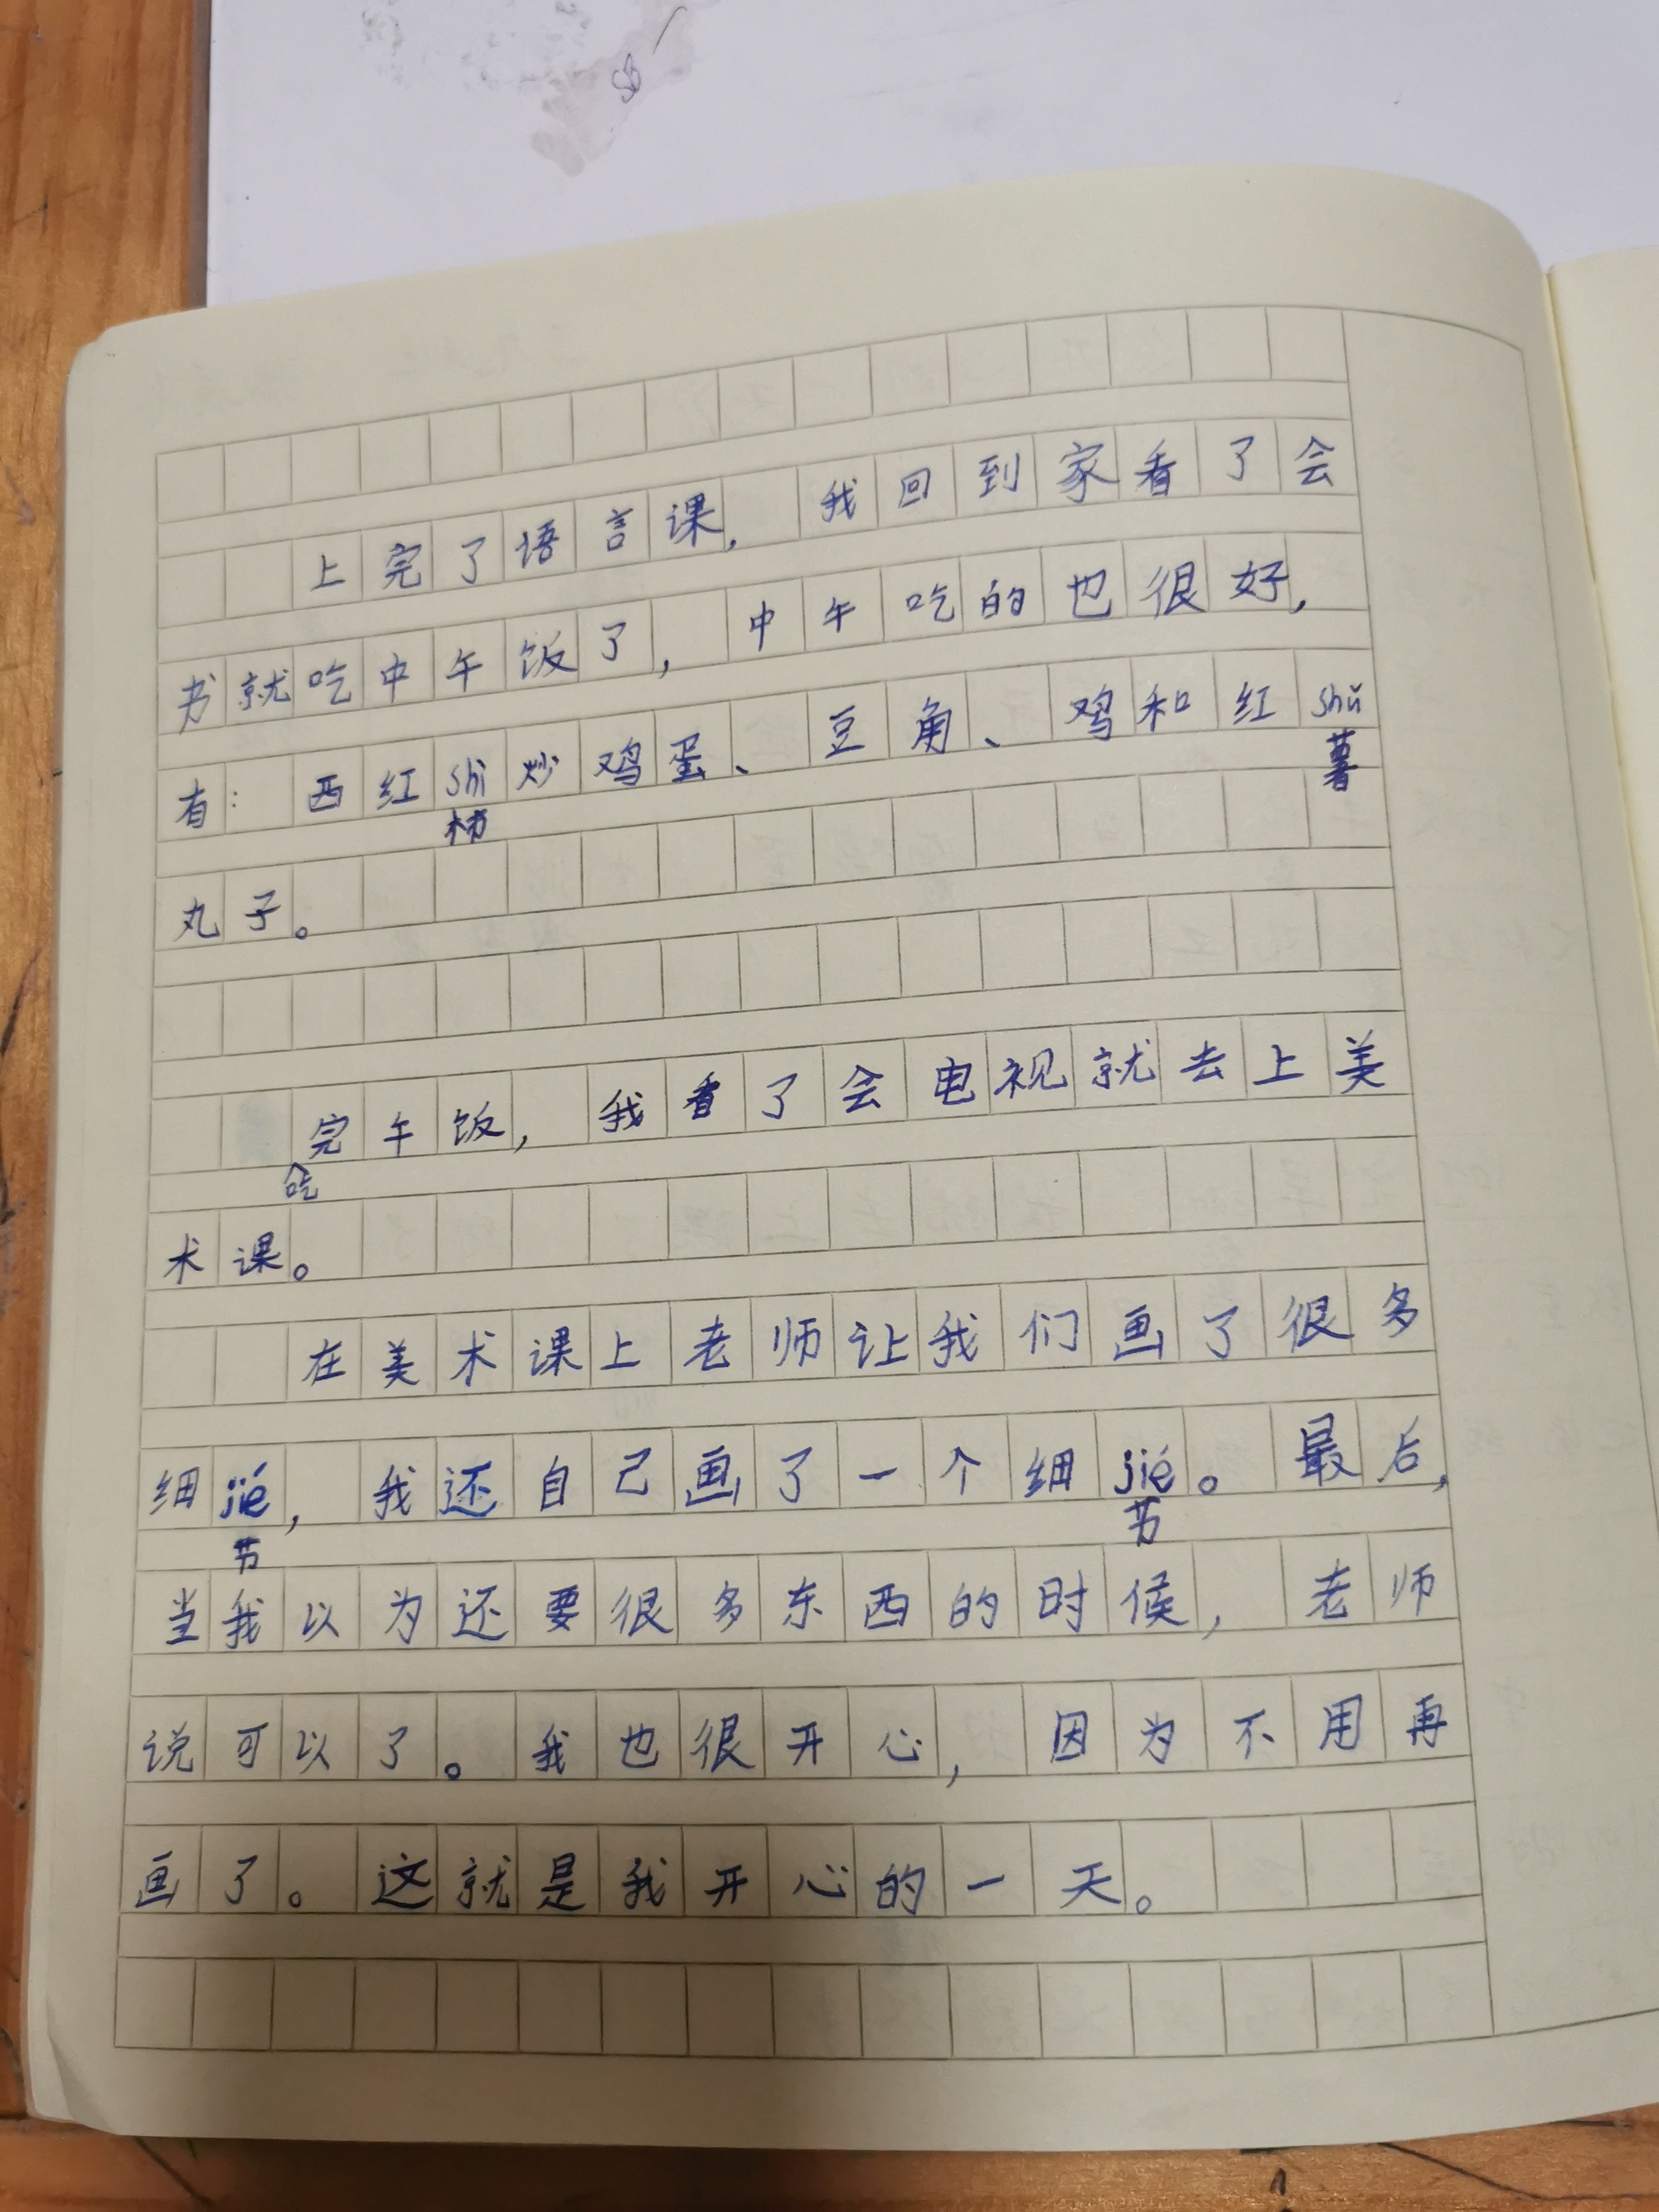 上完了语言课，我回到家看了会
书就吃中午饭了，中午吃的也很好，
有：西红shì炒鸡蛋、豆角、鸡和红shǔ
柿 薯
丸子。
完午饭，我看了会电视就去上美
吃
术课。
在美术课上老师让我们画了很多
细jié，我还自己画了一个细jié。最后，
节 节
当我以为还要很多东西的时候，老师
说可以了。我也很开心，因为不用再
画了。这就是我开心的一天。